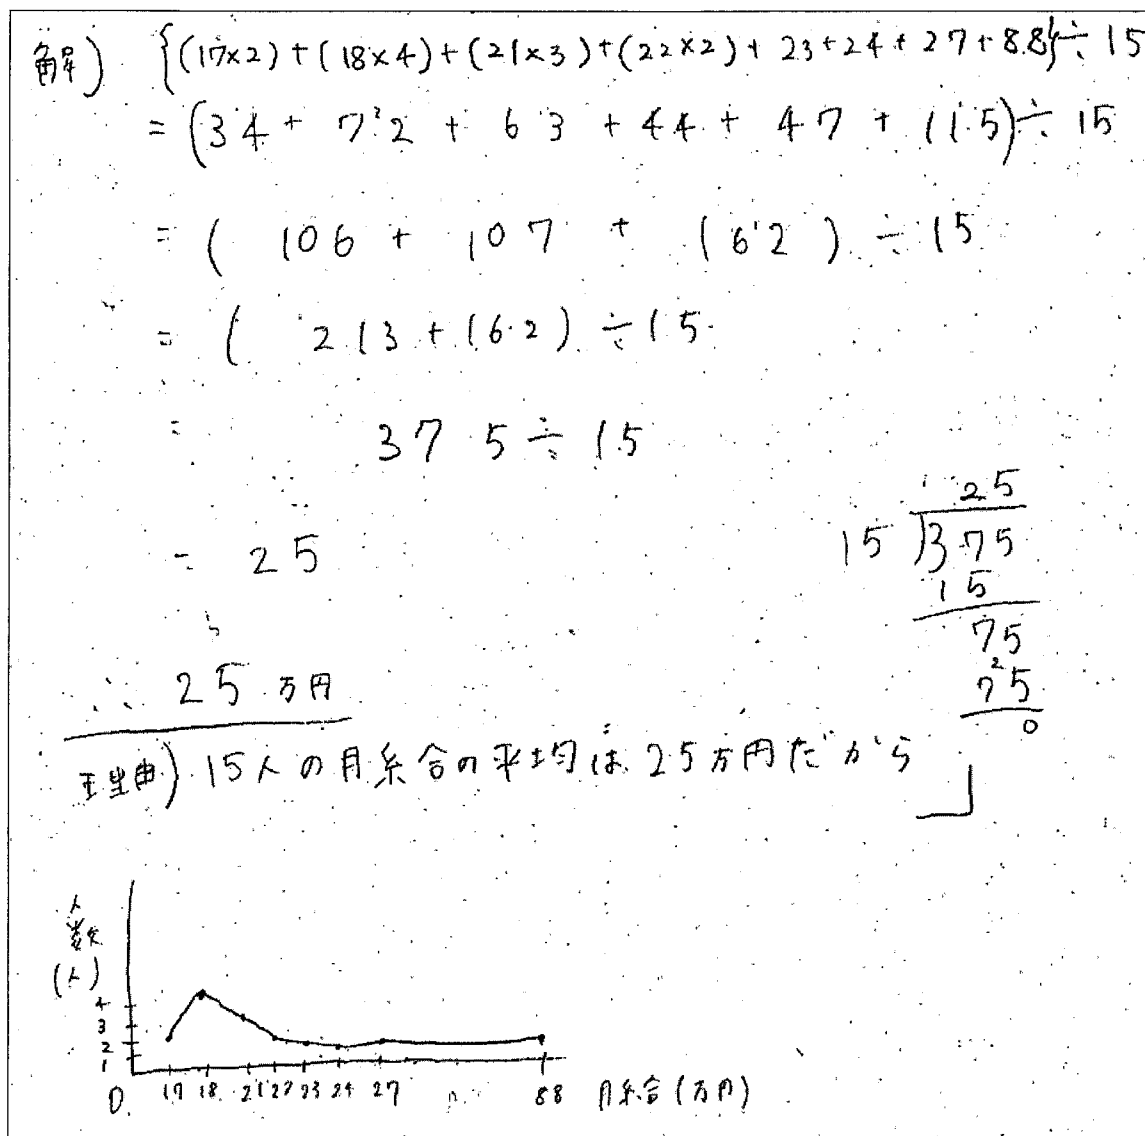 解) {(17×2)+(18×4)+(21×3)+(22×2)+23+24+27+88}÷15
=(34+72+63+44+47+115)÷15
=(106+107+162)÷15
=(213+162)÷15
=375÷15
=25
25
15)375
15
75
75
0
∴25万円
理由) 15人の月給の平均は25万円だから
人数(人)
4
3
2
1
0 17 18 21 22 23 24 27 88 月給(万円)